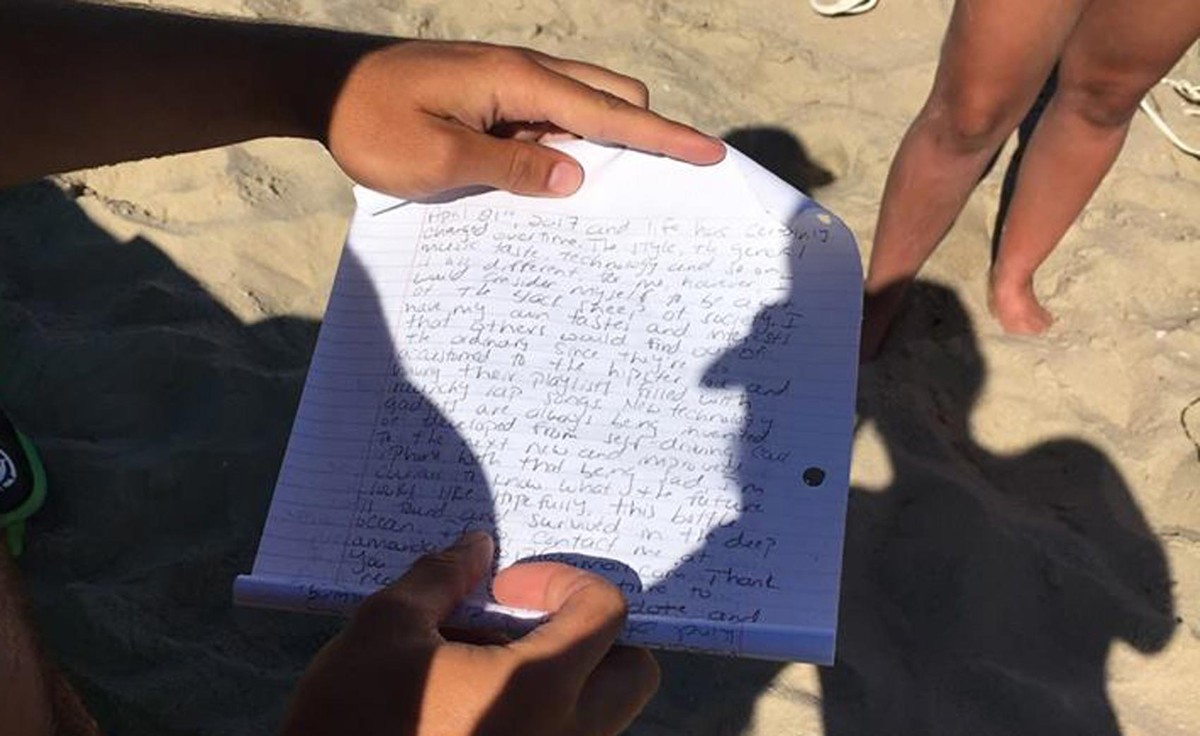 April 21st, 2017 and life has certainly
changed over time. The style, the general
music taste, technology and so on
is all different to me however I
would consider myself to be
of the black sheep of society. I
have my own tastes and interests
that others would find out of
the ordinary since they're so
accustomed to the hipster and
having their playlists filled with
raunchy rap songs. New technology
gadgets are always being invented
or developed from self-driving cars
to the next new and improved
iphone. With that being said I'm
curious to know what the future
looks like. Hopefully, this bottle
is found and survived in the deep
ocean. contact me at
amanda Thank
you time to
date and